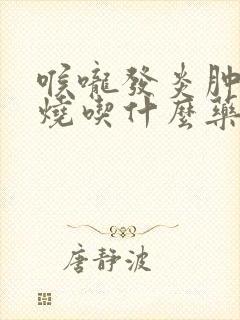 喉嚨發炎肿
燒喫什麼藥
唐静波